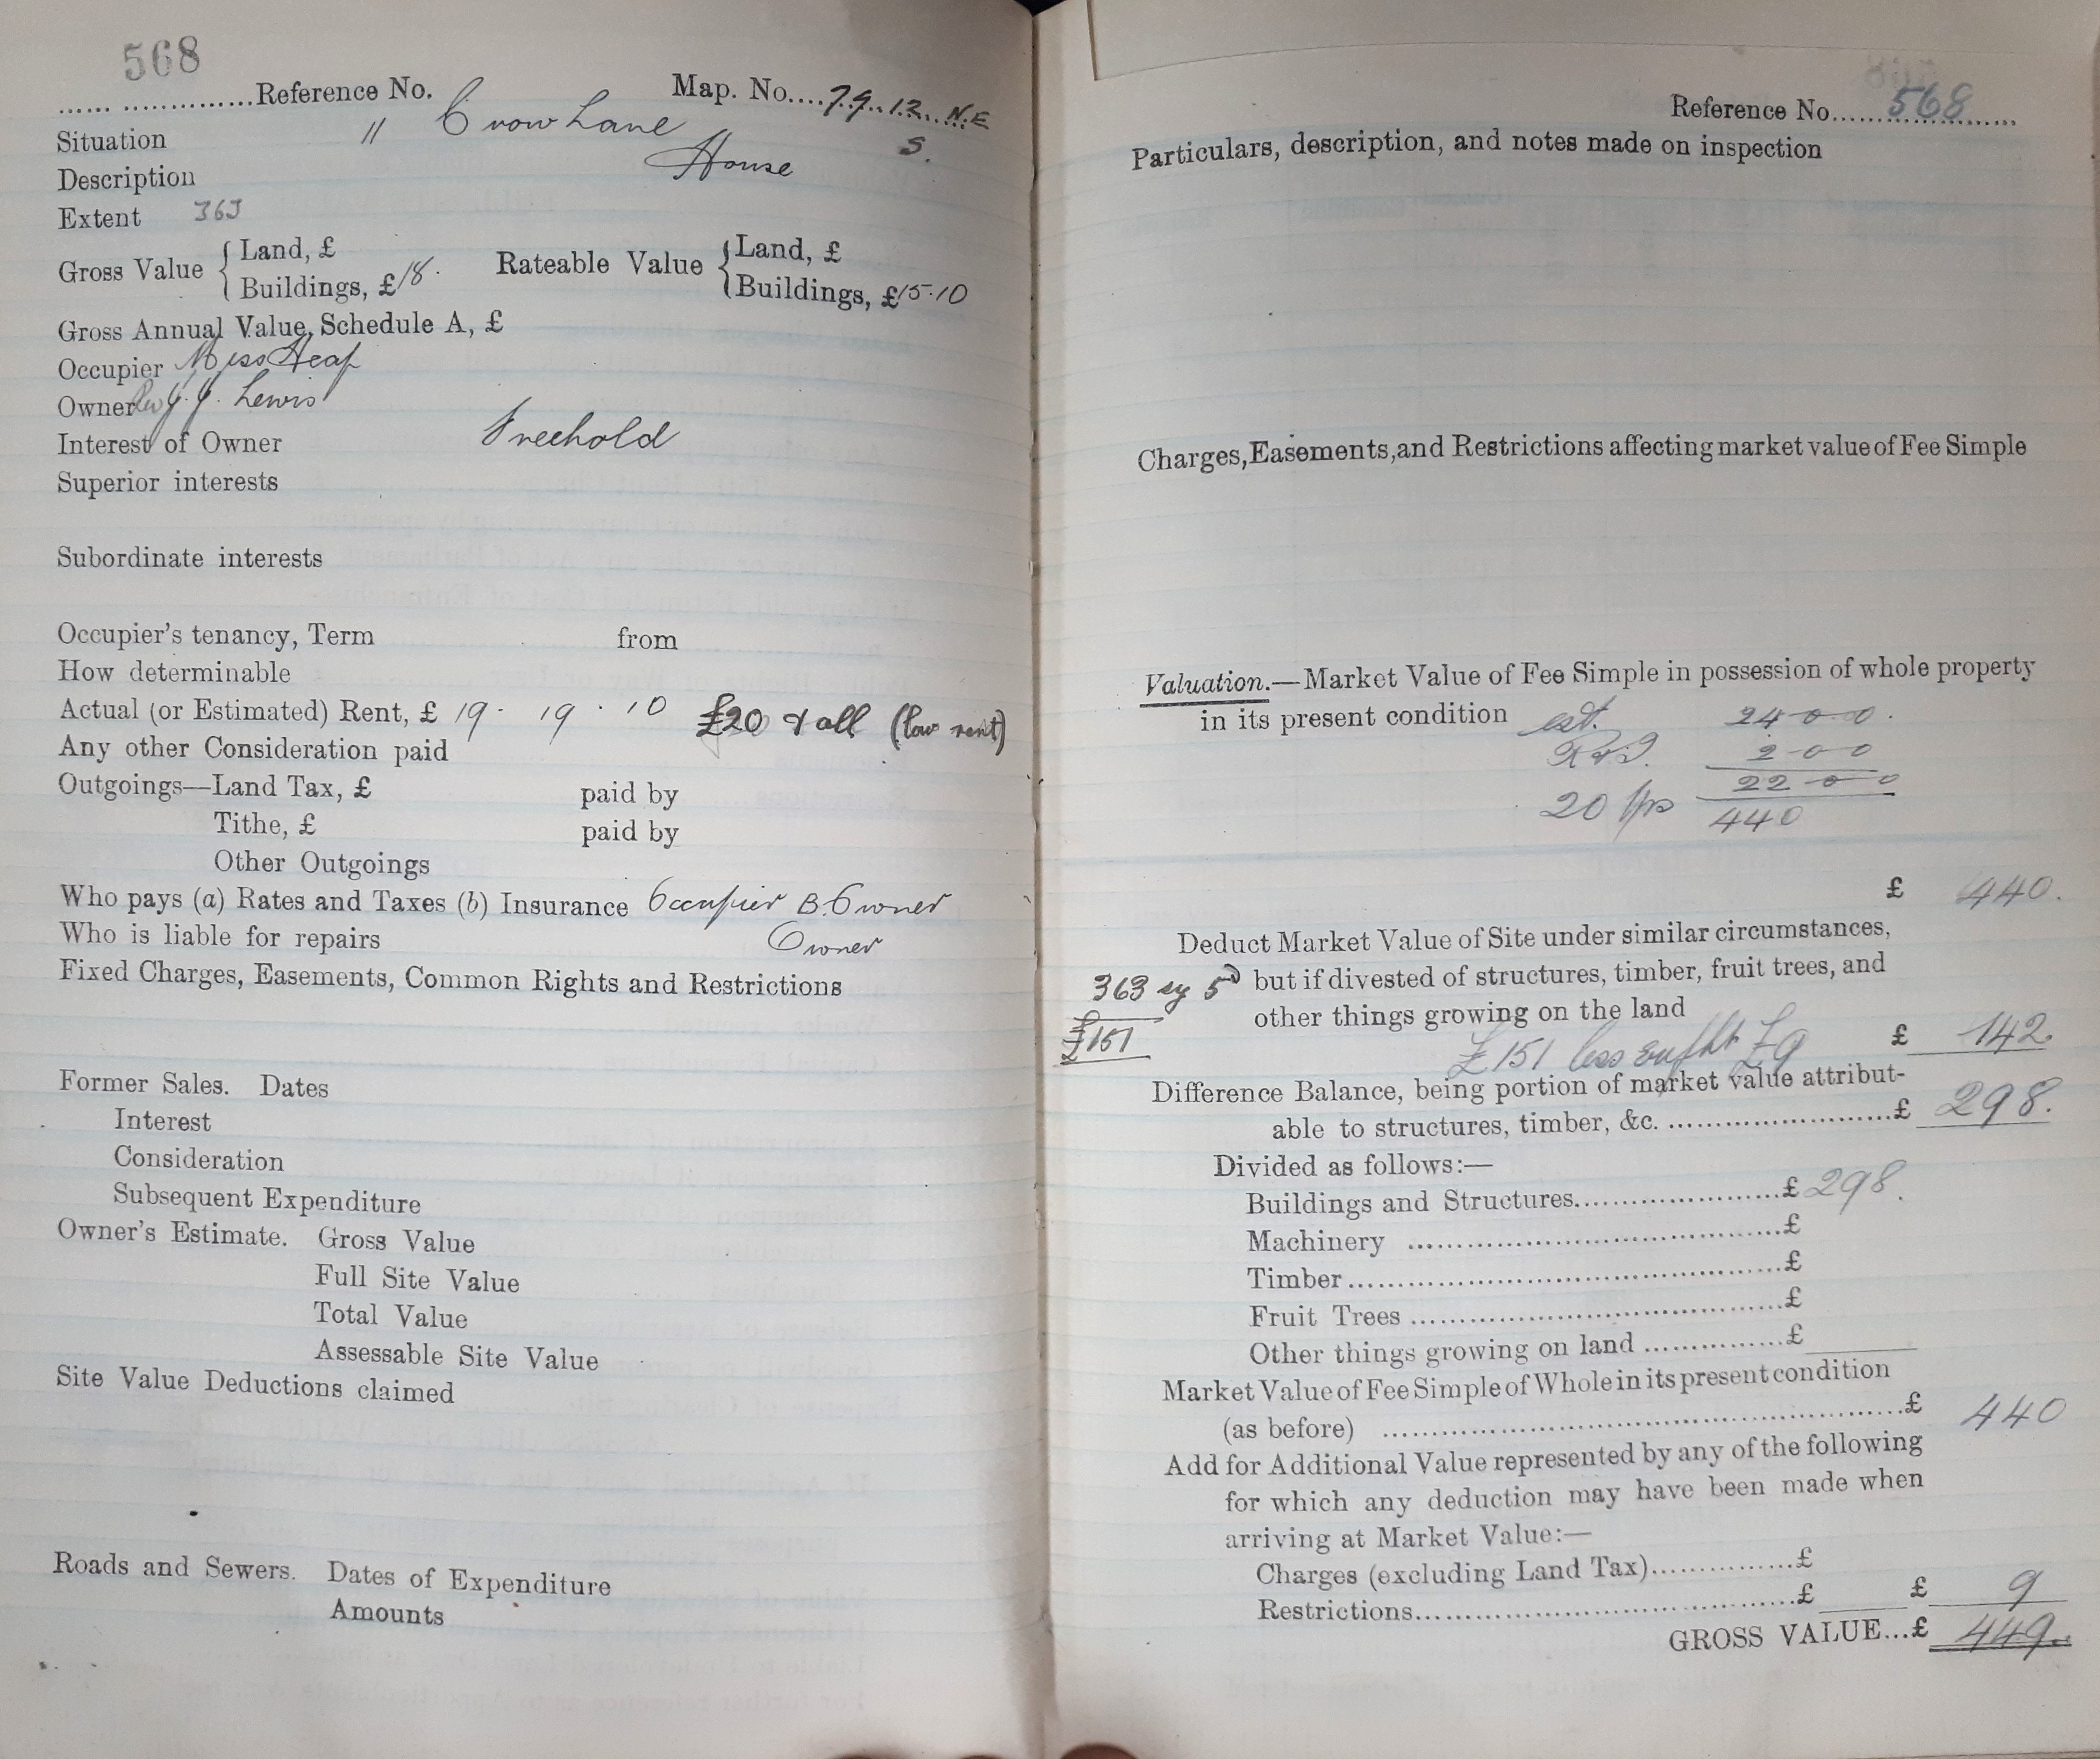 568
Reference No. Map. No. 79.12. N.E
Situation 11 Crow Lane S.
Description House
Extent 363
Gross Value { Land, £ Rateable Value { Land, £
Buildings, £18. Buildings, £15.10
Gross Annual Value, Schedule A, £
Occupier Miss Heap
Owner Rev J. J. Lewis
Interest of Owner Freehold
Superior interests
Subordinate interests
Occupier's tenancy, Term from
How determinable
Actual (or Estimated) Rent, £ 19 . 19 . 10 £20 & all (low rent)
Any other Consideration paid
Outgoings—Land Tax, £ paid by
Tithe, £ paid by
Other Outgoings
Who pays (a) Rates and Taxes (b) Insurance Occupier B. Owner
Who is liable for repairs Owner
Fixed Charges, Easements, Common Rights and Restrictions
Former Sales. Dates
Interest
Consideration
Subsequent Expenditure
Owner's Estimate. Gross Value
Full Site Value
Total Value
Assessable Site Value
Site Value Deductions claimed
Roads and Sewers. Dates of Expenditure
Amounts
Reference No. 568
Particulars, description, and notes made on inspection
Charges, Easements, and Restrictions affecting market value of Fee Simple
Valuation.—Market Value of Fee Simple in possession of whole property
in its present condition est. 24-0-0.
2-0-0
22-0-0
20 yps 440
£ 440.
Deduct Market Value of Site under similar circumstances,
363 sy 5d but if divested of structures, timber, fruit trees, and
other things growing on the land
£151 £151 less £9 £ 142.
Difference Balance, being portion of market value attribut-
able to structures, timber, &c. £ 298.
Divided as follows:—
Buildings and Structures £ 298.
Machinery £
Timber £
Fruit Trees £
Other things growing on land £
Market Value of Fee Simple of Whole in its present condition
(as before) £ 440
Add for Additional Value represented by any of the following
for which any deduction may have been made when
arriving at Market Value:—
Charges (excluding Land Tax) £
Restrictions £ £ 9
GROSS VALUE...£ 449.